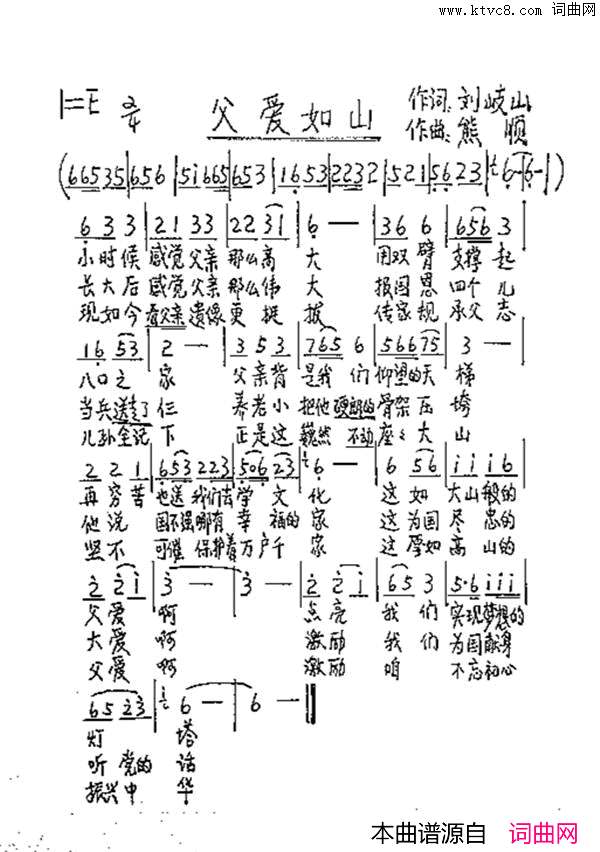 www.ktvc8.com 词曲网
1=E 2/4 父爱如山 作词:刘岐山
作曲:熊顺
(66535|656|51665|653|1653|22232|521|5623|6-|6-|)
6 3 3|21 33|22 31|6 —|36 6|656 3|
小时候 感觉父亲 那么高 大 用双臂 支撑起
长大后 感觉父亲 那么伟 大 报国恩 四个儿
现如今 看父亲遗像 更挺 拔 传家规 承父志
16 53|2 —|3 5 3|765 6|566 75|3 —|
八口之 家 父亲背 是我们 仰望的天 梯
当兵送走了 仨 养老小 把他硬朗的 骨架压 垮
儿孙全记 下 正是这 巍然不动 座座大 山
2 2 1|653 223|506 23|6 —|6 56|i i i 6|
再穷苦 也送我们去学文 化 这如 大山般的
他说 国不强哪有幸福的 家 这为国尽忠的
坚不 可催 保护着万户千 家 这譬如高山的
2 2 i|3 —|3 —|2 2 i|65 3|5·6 i i i|
父爱 啊 点亮 我们 实现梦想的
大爱 啊 激励 我们 为国献身
父爱 啊 激励 咱 不忘初心
65 23|6 —|6 —‖
灯 塔
听党的 话
振兴中 华
本曲谱源自 词曲网